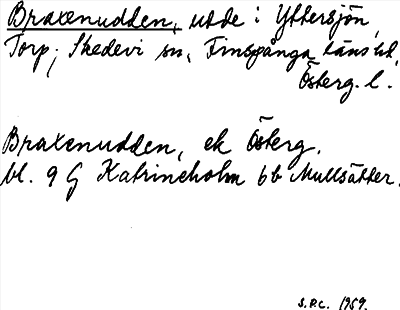 Braxenudden, udde i Yttersjön,
Torp, Skedevi sn, Finspånga läns hd,
Österg. l.
Braxenudden, ek Österg.
bl. 9 G Katrineholm 6b Mullsätter.
S.P.C. 1959.